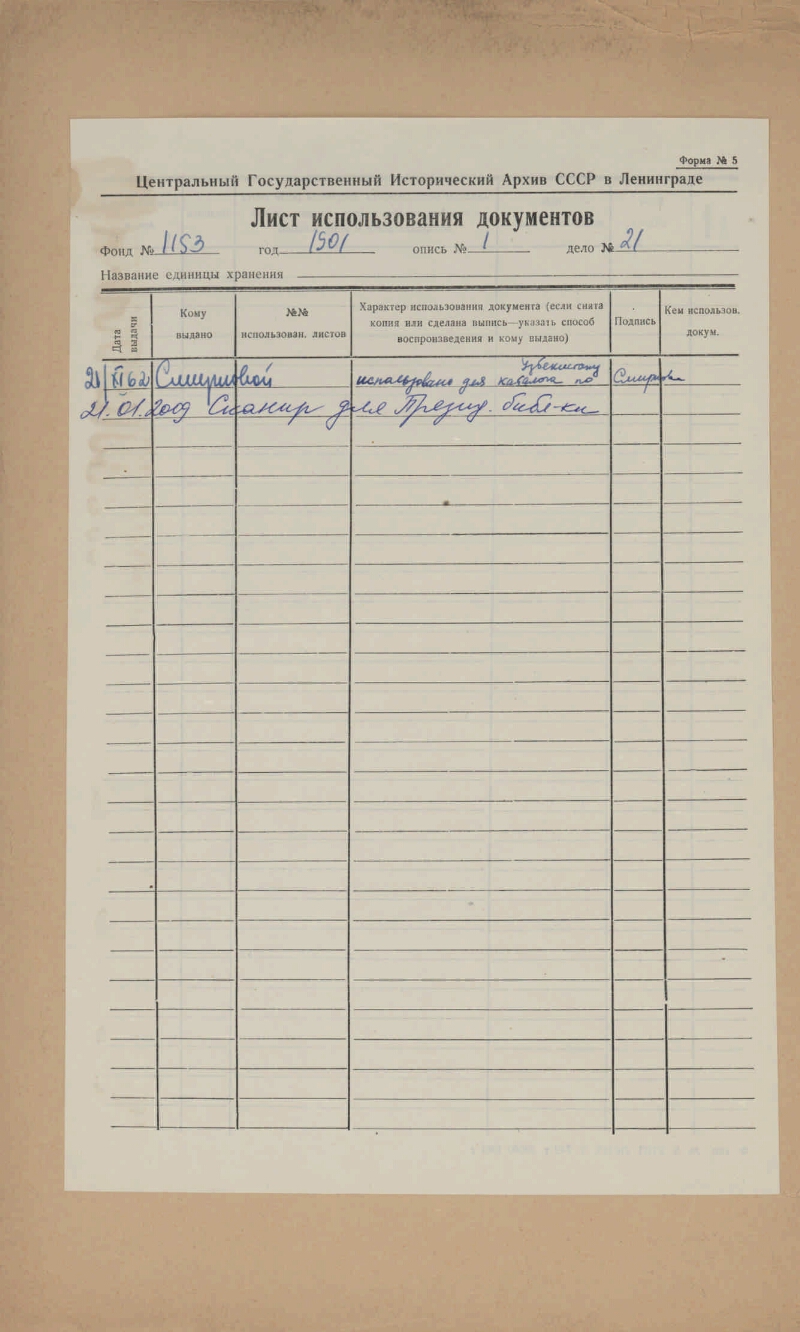 Форма № 5
Центральный Государственный Исторический Архив СССР в Ленинграде
Лист использования документов
Фонд № 1153 год 1901 опись № 1 дело № 21
Название единицы хранения
Дата выдачи
Кому выдано
№№ использован. листов
Характер использования документа (если снята копия или сделана выпись—указать способ воспроизведения и кому выдано)
Подпись
Кем использов. докум.
Узбекистану
21 VI 62 Смирновой использовано для каталога по
21.01.2009 Сканир для Презид. библ-ки